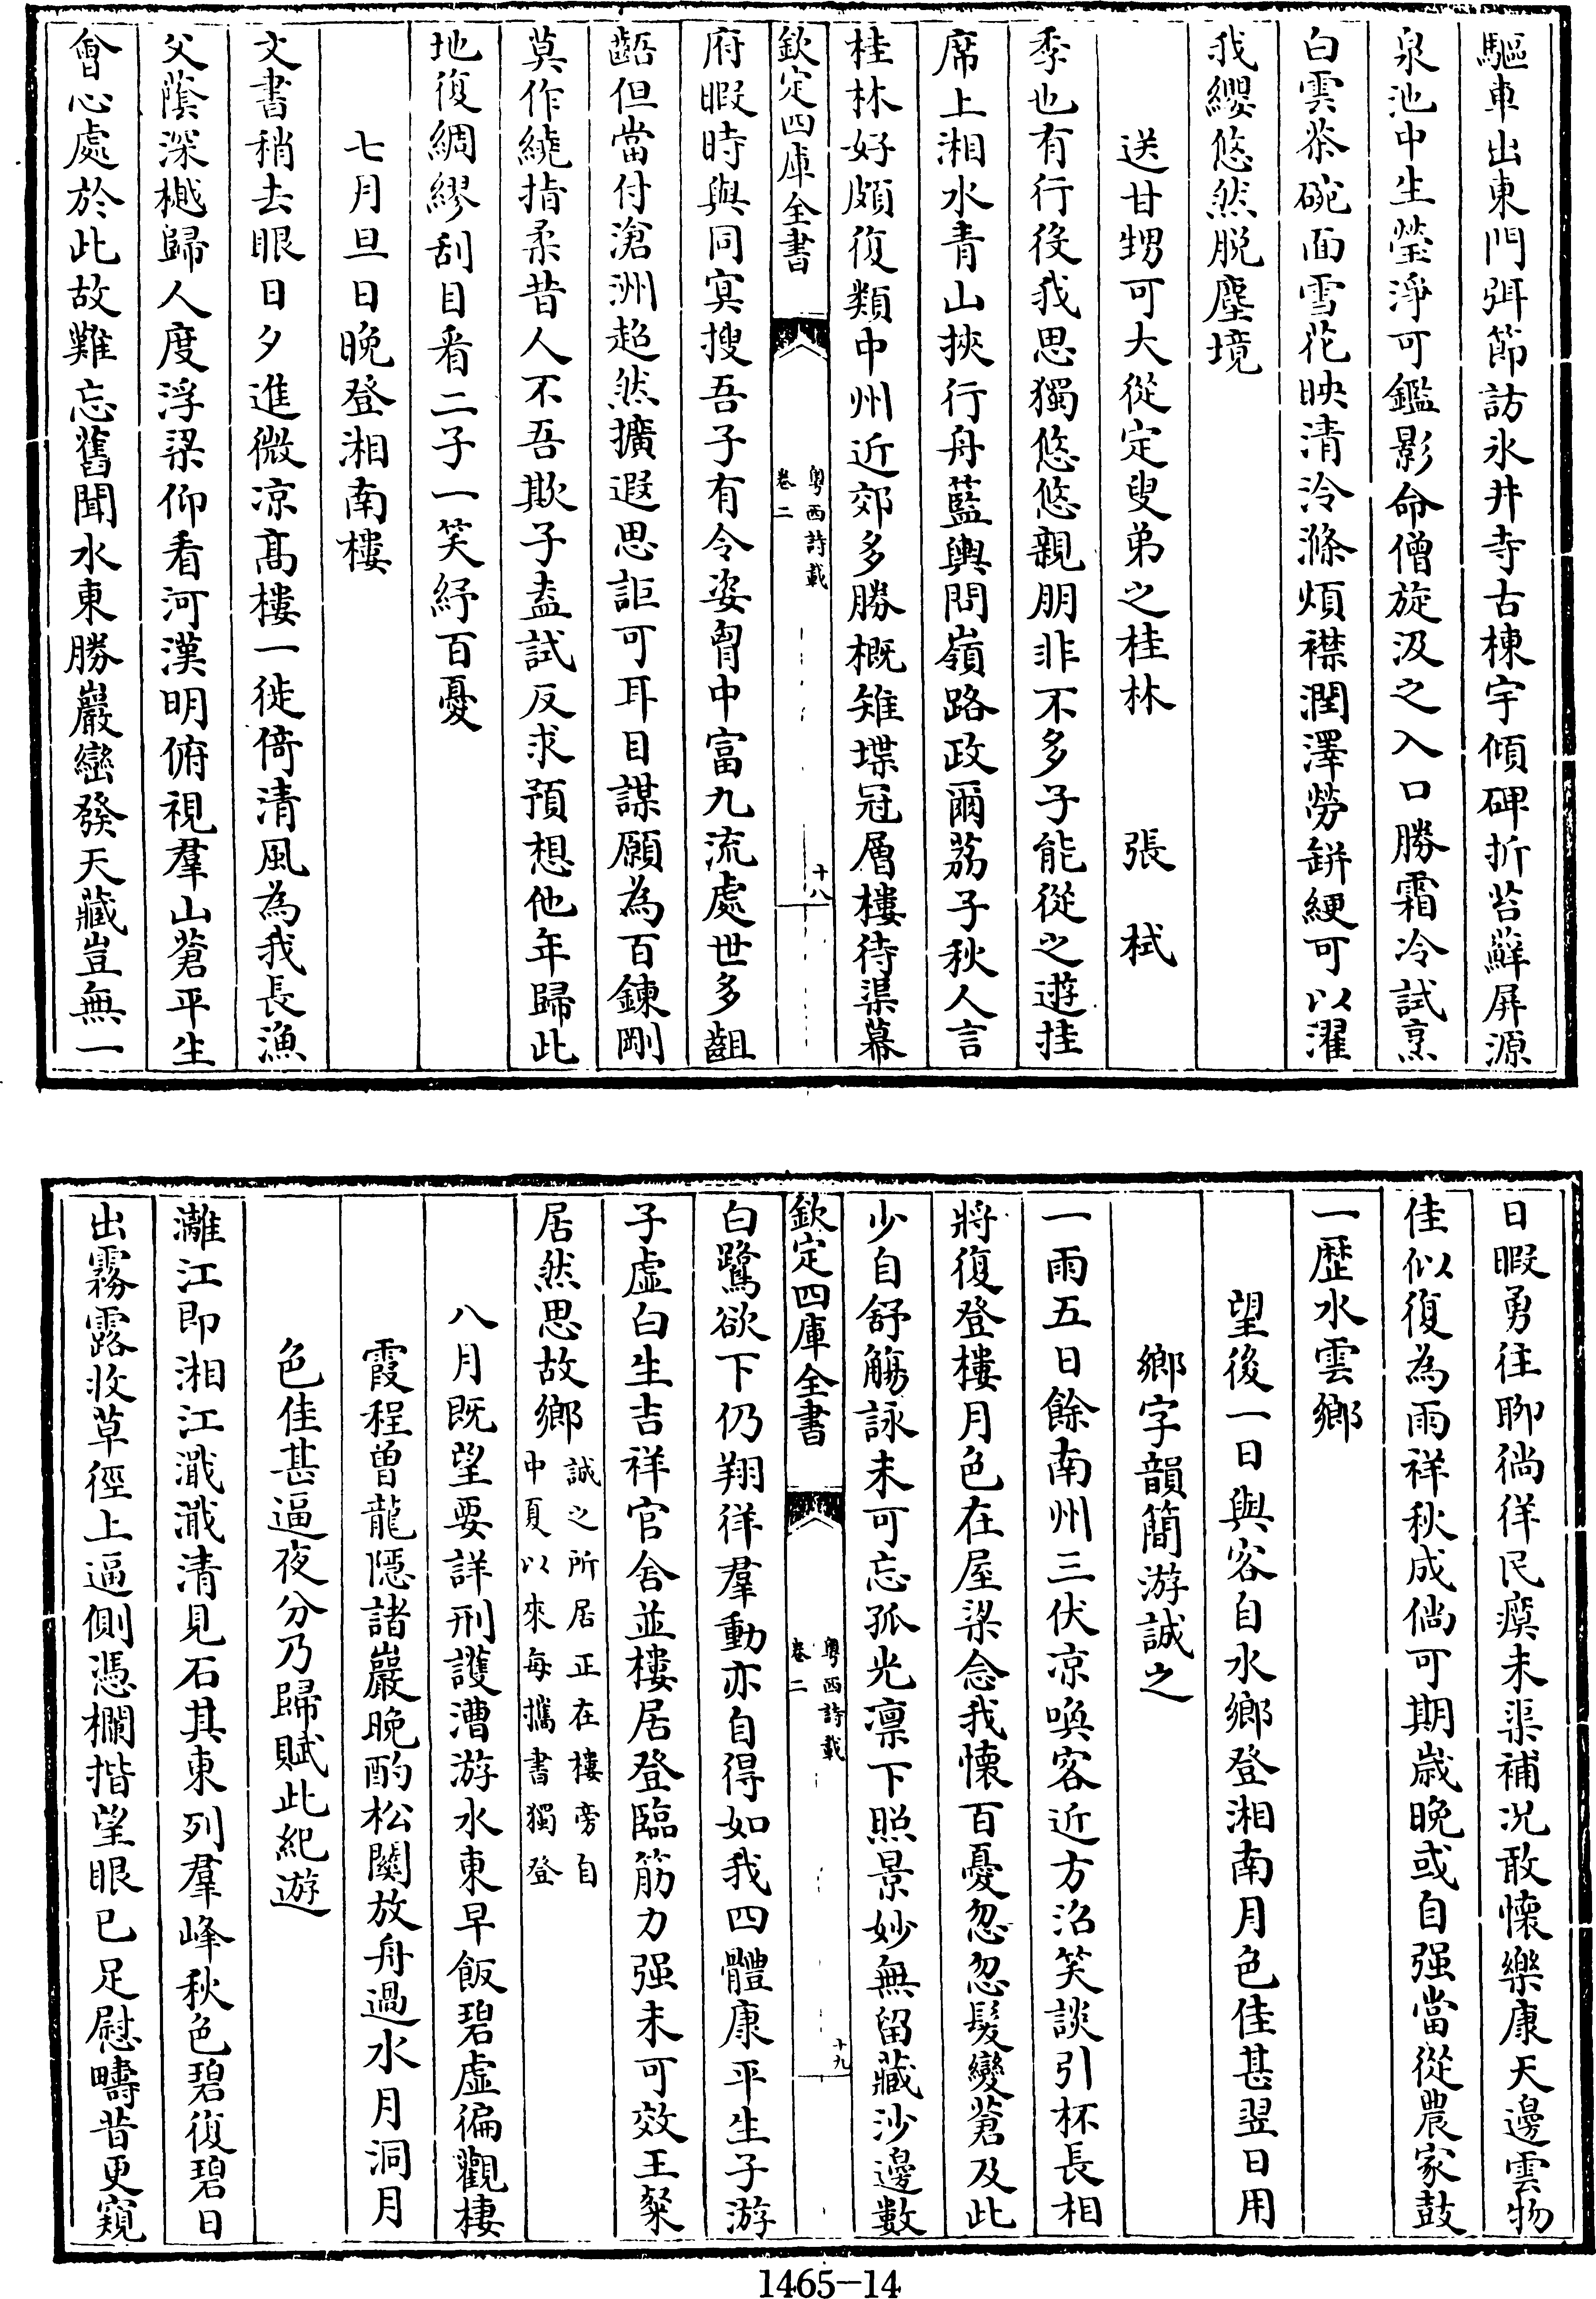 驅車出東門弭節訪氷井寺古棟宇傾碑折苔蘚屏源
泉池中生瑩淨可鑑影命僧旋汲之入口勝霜冷試烹
白雲茶碗面雪花映清泠滌煩襟潤澤勞缾綆可以濯
我纓悠然脱塵境
送甘甥可大從定叟弟之桂林　張栻
季也有行役我思獨悠悠親朋非不多子能從之遊挂
席上湘水青山挾行舟藍輿問嶺路政爾荔子秋人言
桂林好頗復類中州近郊多勝概雉堞冠層樓待渠幕
欽定四庫全書　粤西詩載卷二　十八
府暇時與同㝠搜吾子有令姿胷中富九流處世多齟
齬但當付滄洲超然擴遐思詎可耳目謀願為百鍊剛
莫作繞指柔昔人不吾欺子盍試反求預想他年歸此
地復綢繆刮目看二子一笑紓百憂
七月旦日晩登湘南樓
文書稍去眼日夕進微凉高樓一徙倚清風為我長漁
父蔭深樾歸人度浮梁仰看河漢明俯視羣山蒼平生
會心處於此故難忘舊聞水東勝巖巒發天藏豈無一
日暇勇往聊徜徉民瘼未渠補况敢懷樂康天邊雲物
佳似復為雨祥秋成倘可期歲晩或自强當從農家鼓
一歴水雲鄉
望後一日與客自水鄉登湘南月色佳甚翌日用
鄉字韻簡游誠之
一雨五日餘南州三伏凉喚客近方沼笑談引杯長相
將復登樓月色在屋梁念我懷百憂忽忽髮變蒼及此
少自舒觴詠未可忘孤光凛下照景妙無留藏沙邊數
欽定四庫全書　粤西詩載卷二　十九
白鷺欲下仍翔徉羣動亦自得如我四體康平生子游
子虚白生吉祥官舍並樓居登臨筋力强未可效王粲
居然思故鄉誠之所居正在樓旁自中夏以來每攜書獨登
八月既望要詳刑護漕游水東早飯碧虚徧觀棲
霞程曾龍隱諸巖晩酌松關放舟過水月洞月
色佳甚逼夜分乃歸賦此紀遊
灕江即湘江瀎瀎清見石其東列羣峰秋色碧復碧日
出霧露收草徑上逼側憑欄揩望眼已足慰疇昔更窺
1465-14